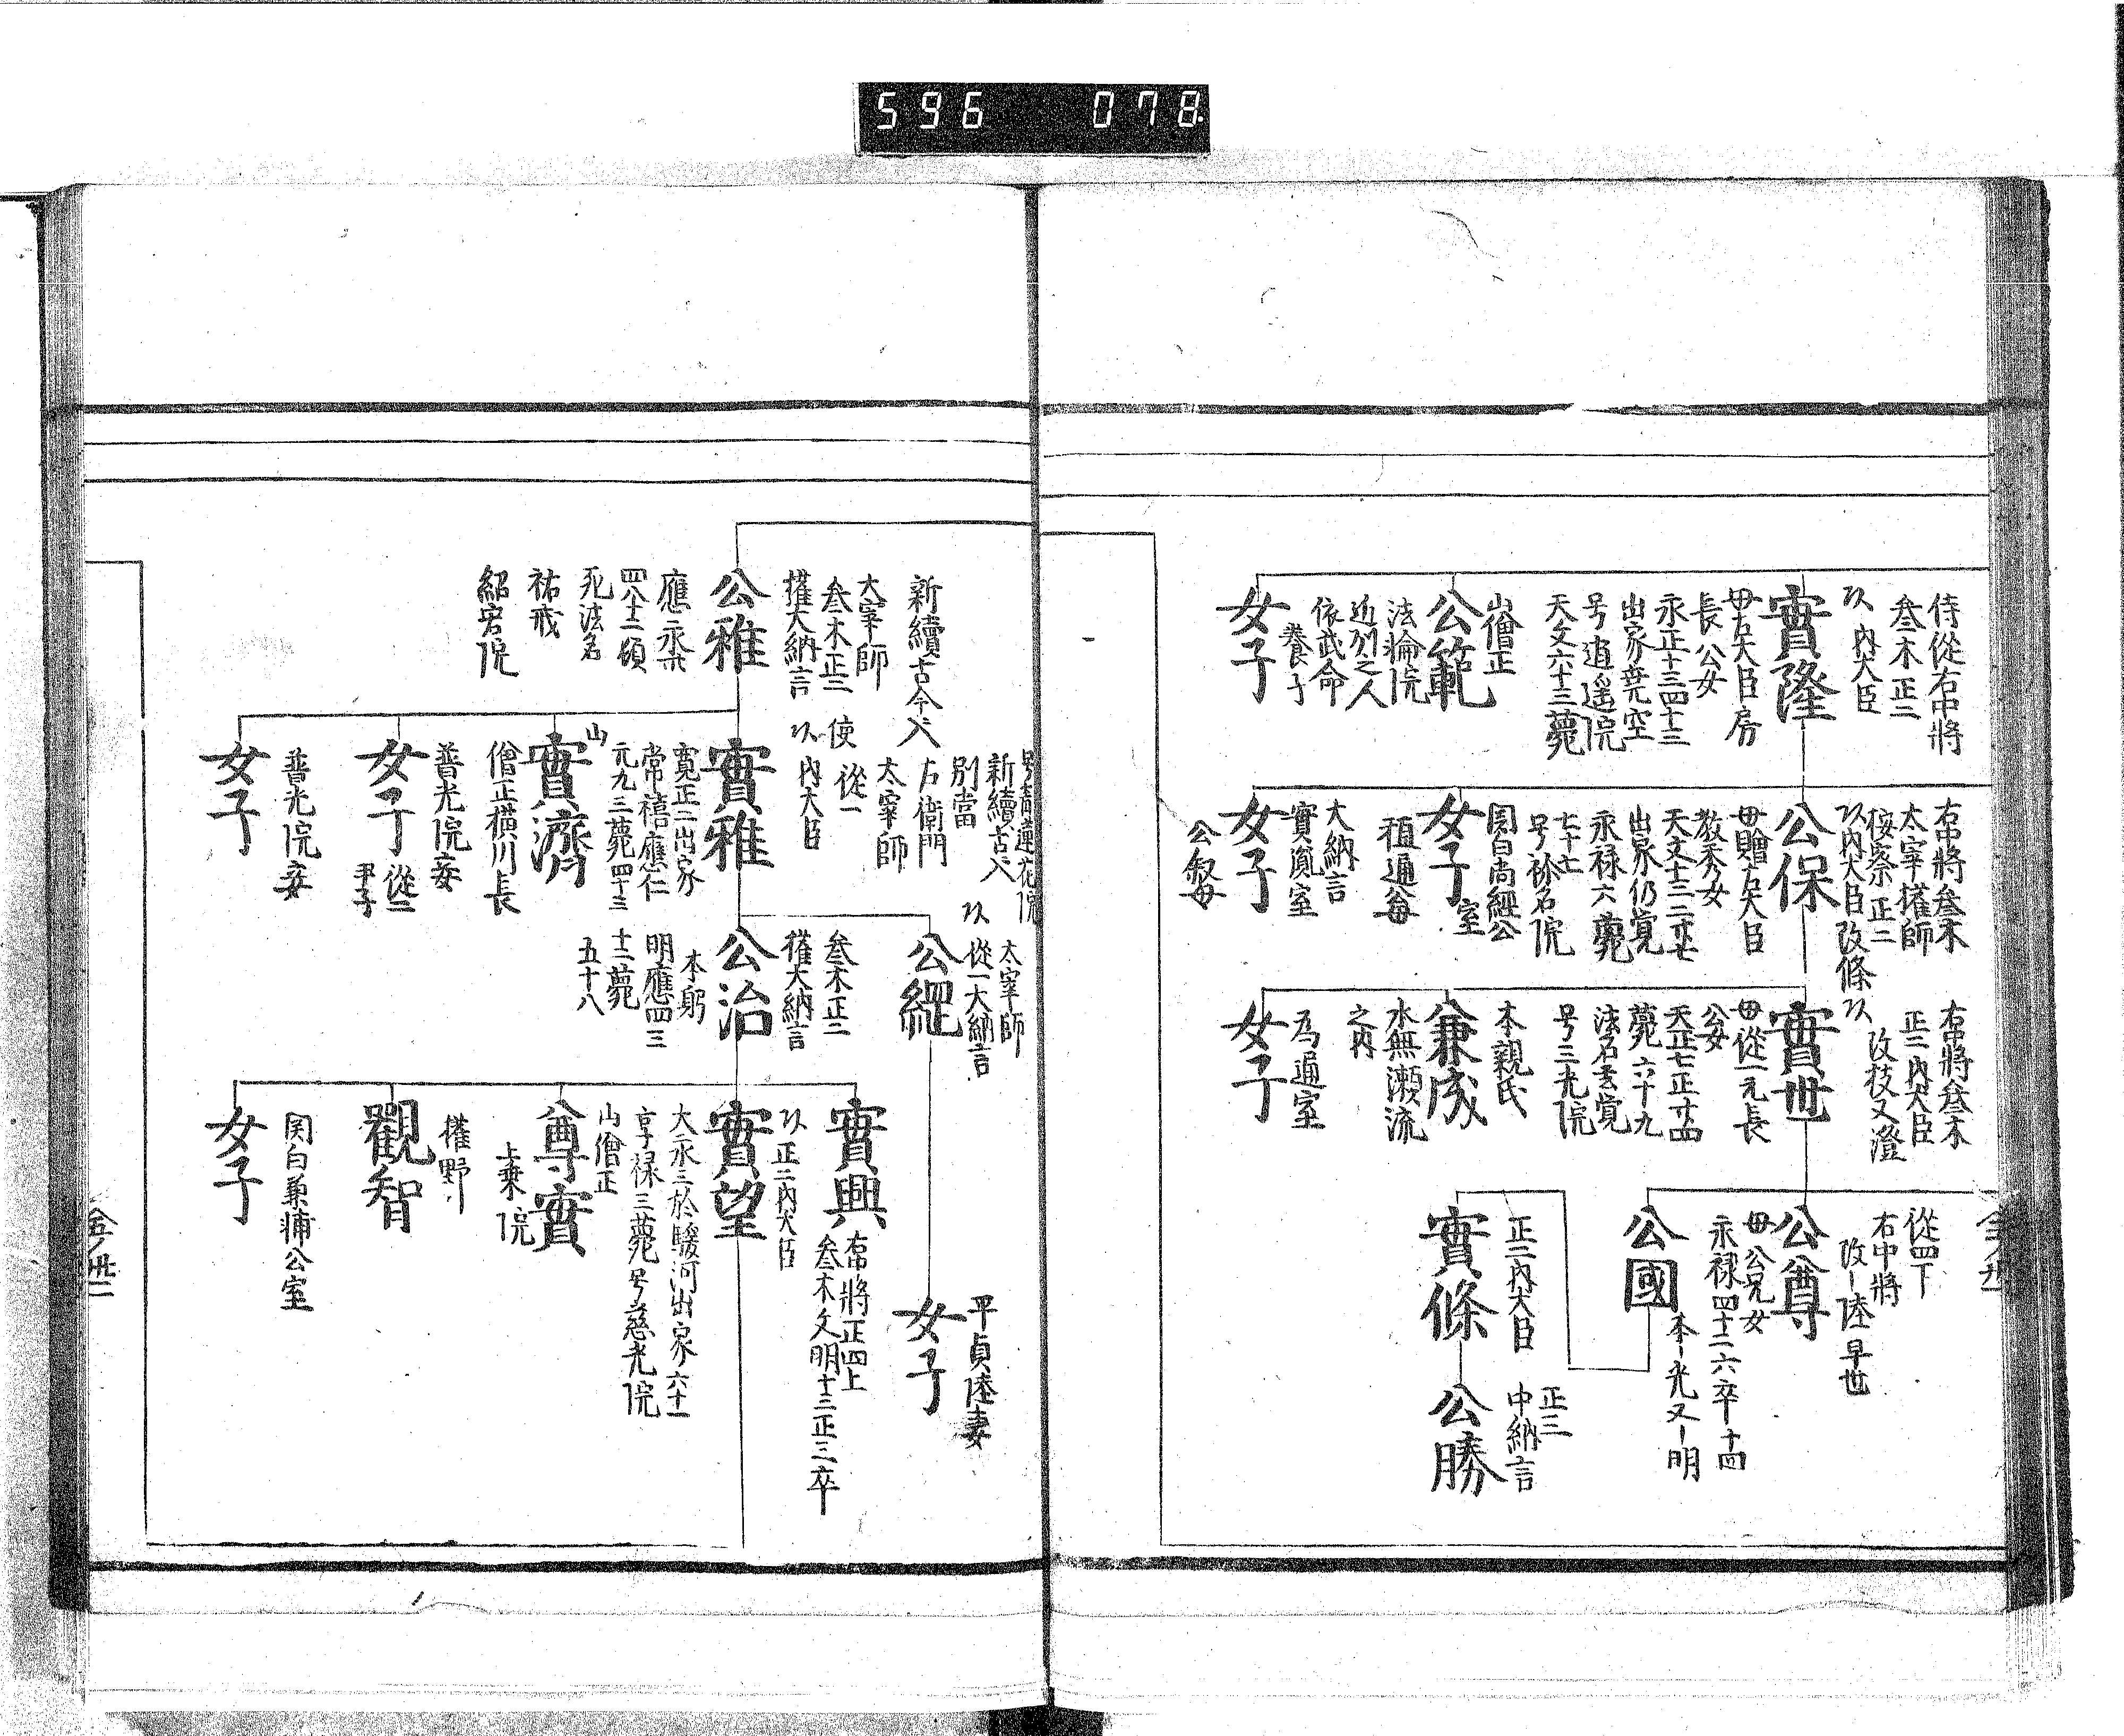 596 078
侍從右中將
叄木正二
内大臣
實隆
母右大臣房
長公女
永正十三四十三
出家尭空
号逍遥院
天文六十三薨
山僧正
公範
法輪院
近列之人
依武命
養子
女子
右中將叄木
太宰権師
按察正二
内大臣改條
公保
母贈左大臣
教秀女
出家仍覚
永禄六薨
七十七
号称名院
関白尚經公
室
女子
稙通母
大納言
實胤室
女子
公叙母
右中將叄木
正二内大臣
改枝又澄
實世
母從一元長
公女
薨六十九
法名玄覚
号三光院
本親氏
兼成
水無瀬流
之内
為通室
女子
從四下
右中將
改一陸早世
公尊
母公兄女
永禄四十二六卒十四
公國
本一光又一明
正二内大臣
實條
正三
中納言
公勝
新續古今入
大宰師
叄木正三
権大納言
公雅
應永廿
四八十二頓
死法名
祐戒
紹宏院
新續古入
別當
右衛門
太宰師
使從一
内大臣
實雅
寛正二出家
常禧應仁
元九三薨四十三
山
實濟
僧正横川長
普光院妾
女子
從二
尹子
普光院妾
女子
太宰師
從一大納言
公綱
叄木正二
権大納言
公治
本躬
明應四三
十二薨
五十八
平貞陸妻
女子
實興
右中將正四上
叄木文明十三正三卒
正二内大臣
實望
大永三於駿河出家六十一
享禄三薨号慈光院
山僧正
尊實
上乗院
権野
觀智
関白兼輔公室
女子